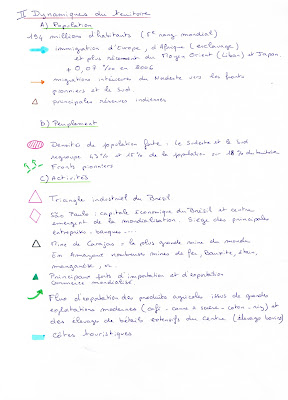 II Dynamiques du territoire
A) Population
194 millions d'habitants (5e rang mondial)
immigration d'Europe, d'Afrique (esclavage)
et plus récemment du Moyen Orient (Liban) et Japon.
+ 0,07 ‰ en 2006
migrations intérieures du Nordeste vers les fronts
pionniers et le Sud
principales réserves indiennes
b) Peuplement
Densité de population forte : le sudeste et le sud
regroupe 43% et 15% de la population sur 18% du territoire
Fronts pionniers
C) Activités
Triangle industriel du Brésil
São Paulo : capitale économique du Brésil et centre
émergent de la mondialisation. Siège des principales
entreprises - banques ...
Mine de Carajas : la plus grande mine du monde
En Amazonie nombreuses mines de fer, Bauxite, étain,
manganèse, or.
Principaux ports d'importation et d'exportation
commerce mondialisé
Flux d'exportation des produits agricoles issus de grandes
exploitations modernes (café - canne à sucre - coton - riz) et
des élevages de bétails extensifs du Centre (élevage bovins)
côtes touristiques